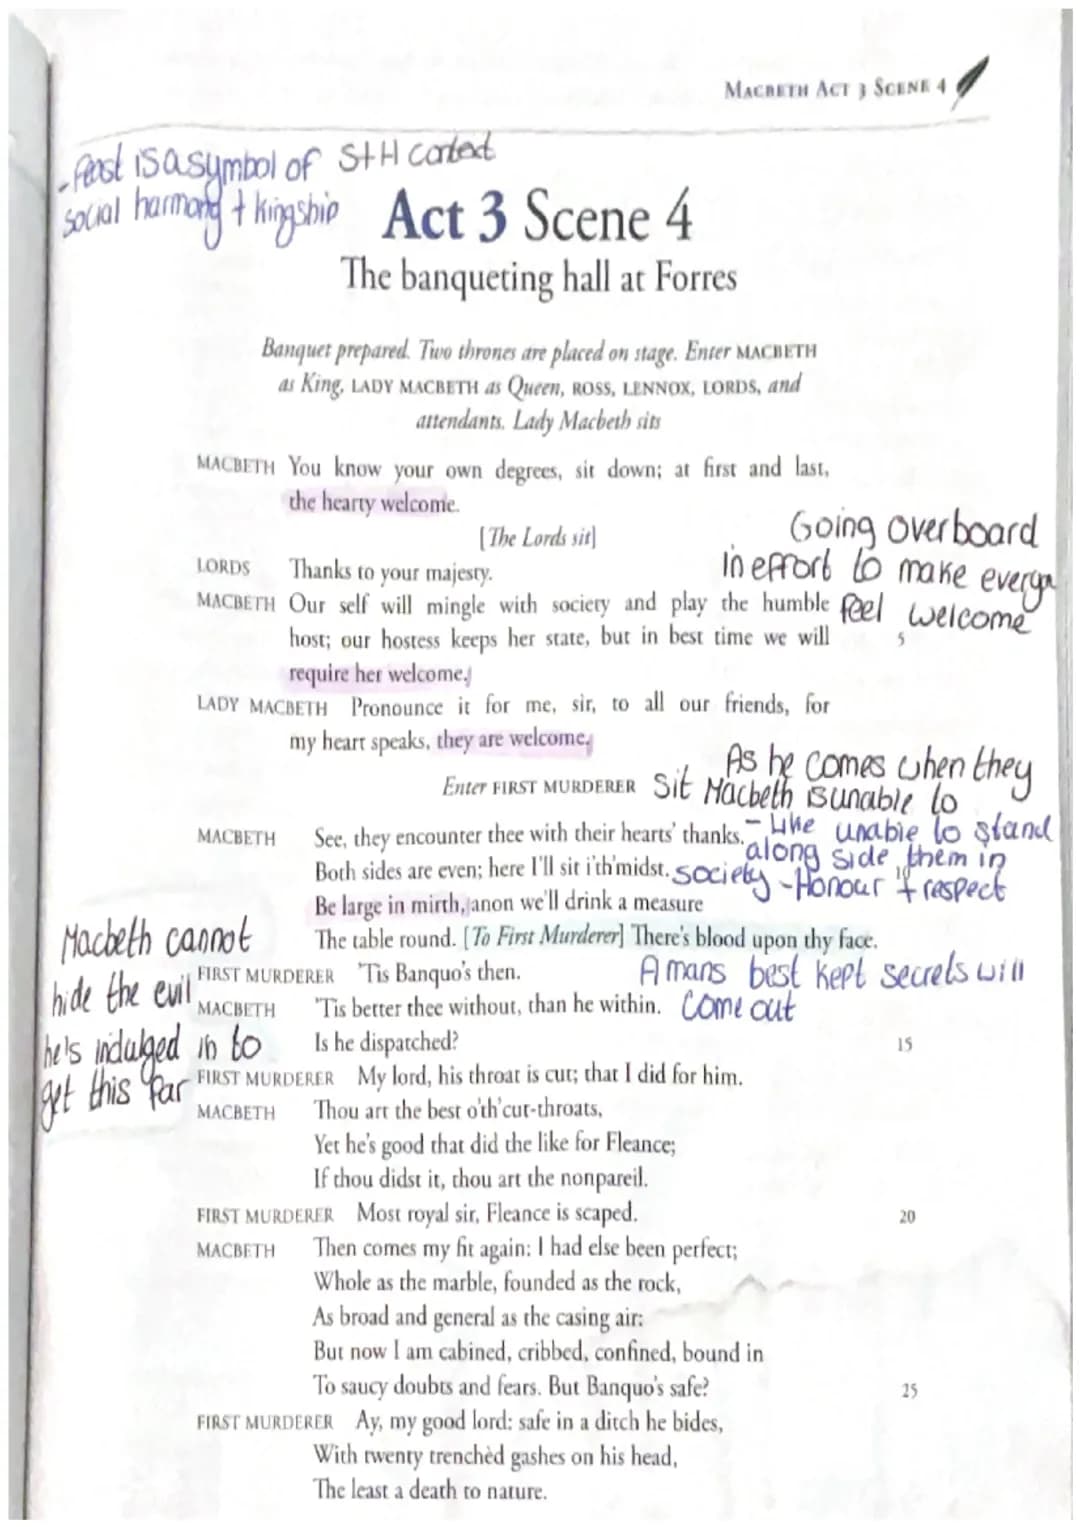 MACBETH ACT 3 SCENE 4
- feast is a symbol of S+H context
social harmony + kingship
Act 3 Scene 4
The banqueting hall at Forres
Banquet prepared. Two thrones are placed on stage. Enter MACBETH
as King, LADY MACBETH as Queen, ROSS, LENNOX, LORDS, and
attendants. Lady Macbeth sits
MACBETH You know your own degrees, sit down; at first and last,
the hearty welcome.
[The Lords sit]
Going overboard
in effort to make everyon
feel welcome
LORDS Thanks to your majesty.
MACBETH Our self will mingle with society and play the humble
host; our hostess keeps her state, but in best time we will 5
require her welcome.
LADY MACBETH Pronounce it for me, sir, to all our friends, for
my heart speaks, they are welcome.
Enter FIRST MURDERER
As he comes when they
sit Macbeth is unable to
- like unable to stand
along side them in
society - Honour + respect
MACBETH See, they encounter thee with their hearts' thanks.
Both sides are even; here I'll sit i'th'midst. 10
Be large in mirth, anon we'll drink a measure
The table round. [To First Murderer] There's blood upon thy face.
Macbeth cannot
hide the evil
he's indulged in to
get this far
FIRST MURDERER 'Tis Banquo's then.
A mans best kept secrets will
come out
MACBETH 'Tis better thee without, than he within.
Is he dispatched? 15
FIRST MURDERER My lord, his throat is cut; that I did for him.
MACBETH Thou art the best o'th'cut-throats,
Yet he's good that did the like for Fleance;
If thou didst it, thou art the nonpareil.
FIRST MURDERER Most royal sir, Fleance is scaped. 20
MACBETH Then comes my fit again: I had else been perfect;
Whole as the marble, founded as the rock,
As broad and general as the casing air:
But now I am cabined, cribbed, confined, bound in
To saucy doubts and fears. But Banquo's safe? 25
FIRST MURDERER Ay, my good lord: safe in a ditch he bides,
With twenty trenchèd gashes on his head,
The least a death to nature.